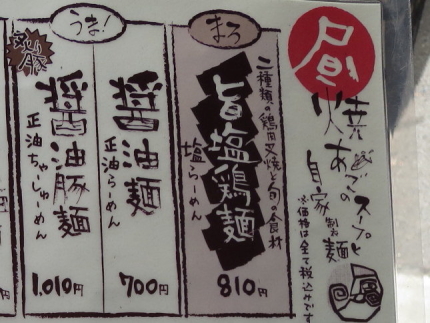 昼
焼あごのスープと
自家製麺
※価格は全て税込みです
まろ
二種類の鶏肉叉焼と旬の食材
旨塩鶏麺
塩らーめん
810円
うま!
醤油麺
正油らーめん
700円
醤油豚麺
正油ちゃーしゅーめん
1,010円